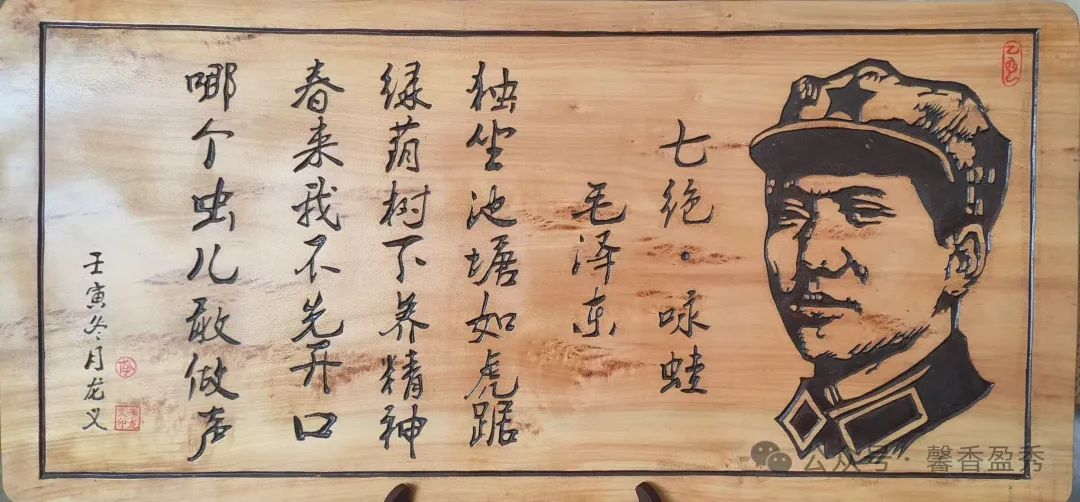 七绝·咏蛙
毛泽东
独坐池塘如虎踞
绿荫树下养精神
春来我不先开口
哪个虫儿敢做声
壬寅冬月龙义
公众号·馨香盈秀